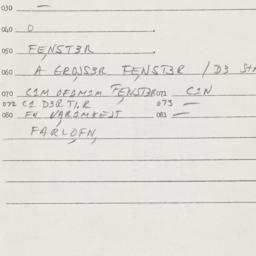 030 —
040 0
050 FENSTER
060 A GROJSER FENSTER / D3
070 FENSTER 071 C1N
072 C1 D3R T1.R 073 —
080 FN VARIMKEJT 081 —
FARLOFN,